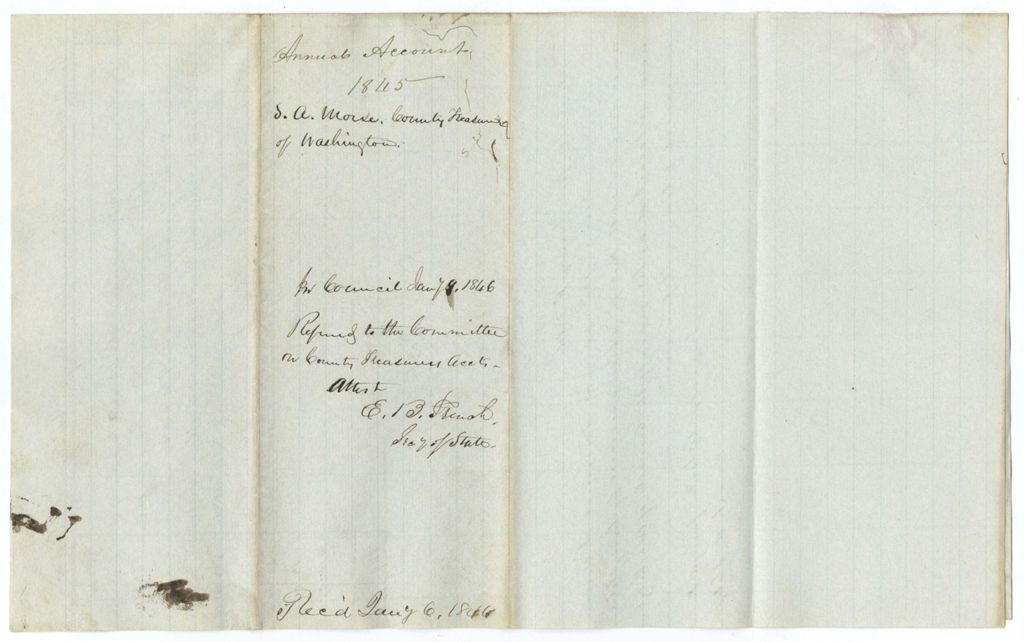 Annual Account
1845
S. A. Morse. County Treasurer
of Washington.
In Council Jany 9, 1846
Referred to the Committee
on County Treasurers Accts.
Attest
E. B. French,
Secy of State.
Rec'd Jany 6, 1846